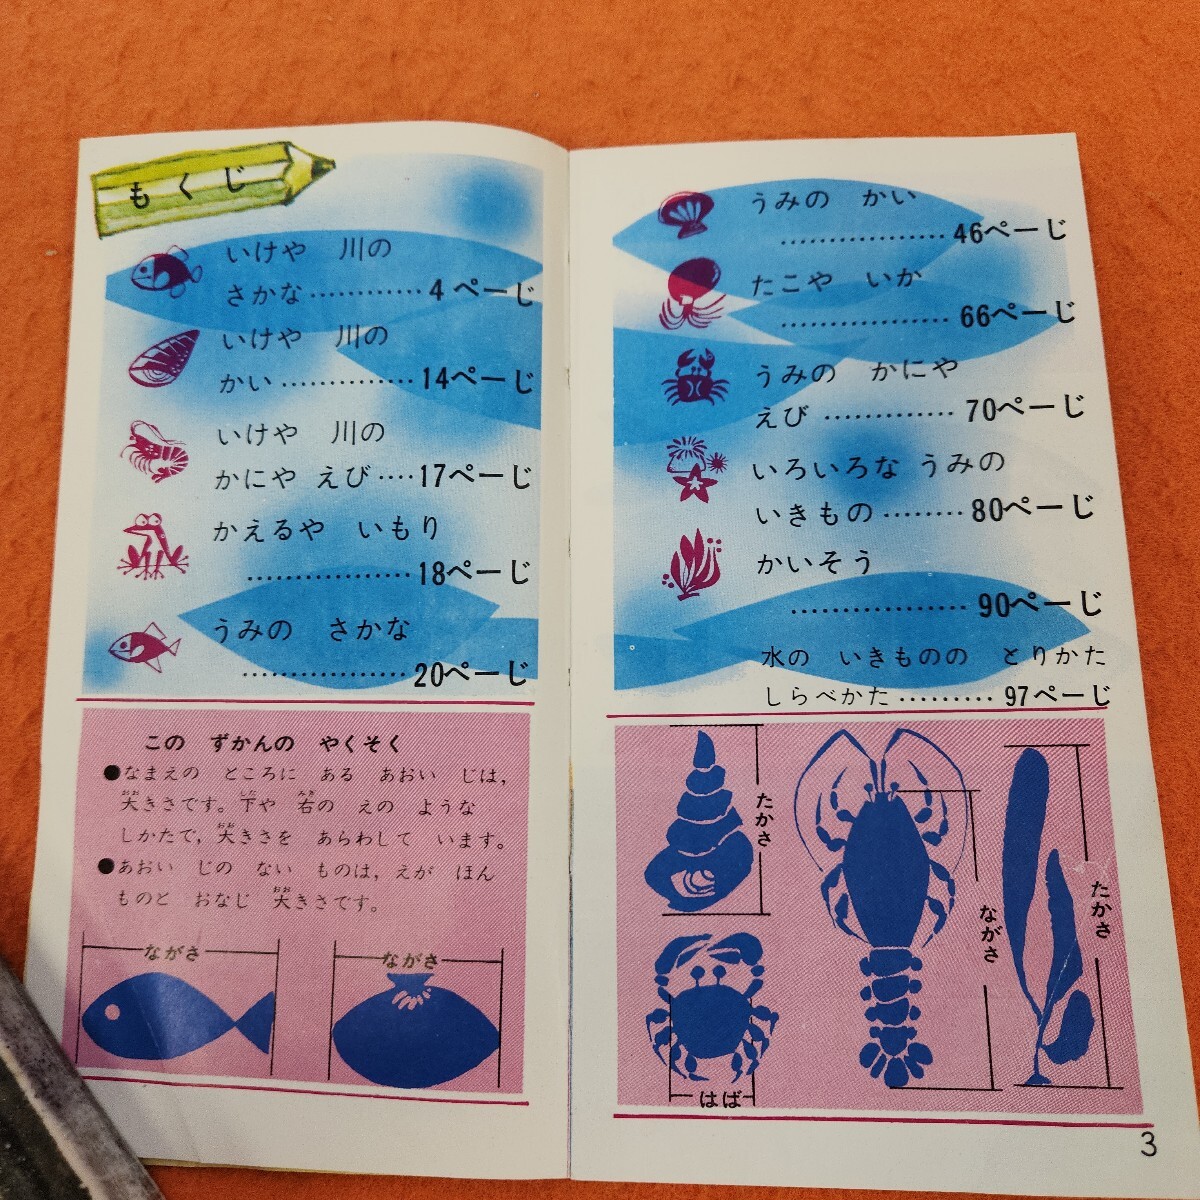 もくじ
いけや 川の
さかな…………4ページ
いけや 川の
かい……………14ページ
いけや 川の
かにや えび‥‥17ページ
かえるや いもり
………………18ページ
うみの さかな
………………20ページ
この ずかんの やくそく
●なまえの ところに ある あおい じは,
大きさです。下や 右の えの ような
しかたで,大きさを あらわして います。
●あおい じの ない ものは,えが ほん
ものと おなじ 大きさです。
ながさ
ながさ
うみの かい
………………46ページ
たこや いか
………………66ページ
うみの かにや
えび ……………70ページ
いろいろな うみの
いきもの………80ページ
かいそう
………………90ページ
水の いきものの とりかた
しらべかた………97ページ
たかさ
はば
ながさ
たかさ
3